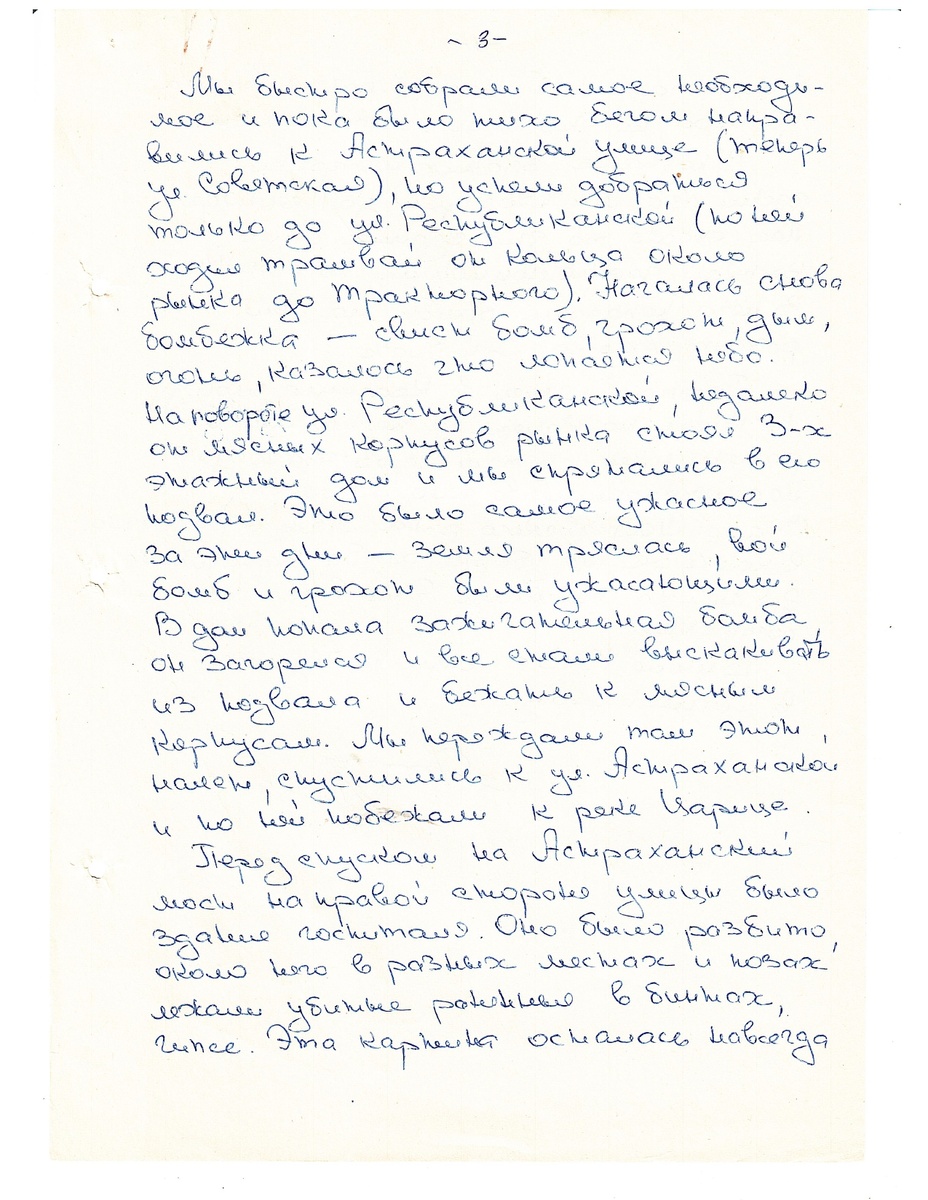 ~ 3 -
Мы быстро собрали самое необходи-
мое и пока было тихо бегом напра-
вились к Астраханской улице (теперь
ул. Советская), но успели добраться
только до ул. Республиканской (по ней
ходил трамвай от кольца около
рынка до Тракторного). Началась снова
бомбежка — свист бомб, грохот, дым,
огонь, казалось что лопается небо.
На повороте ул. Республиканской, недалеко
от мясных корпусов рынка стоял 3-х
этажный дом и мы спрятались в его
подвал. Это было самое ужасное
за эти дни — земля тряслась, вой
бомб и грохот были ужасающими.
В дом попала зажигательная бомба,
он загорелся и все стали выскакивать
из подвала и бежать к мясным
корпусам. Мы переждали там этот
налет, спустились к ул. Астраханской
и по ней побежали к реке Царице.
Перед спуском на Астраханский
мост на правой стороне улицы было
здание госпиталя. Оно было разбито,
около него в разных местах и позах
лежали убитые раненные в бинтах,
гипсе. Эта картина осталась навсегда